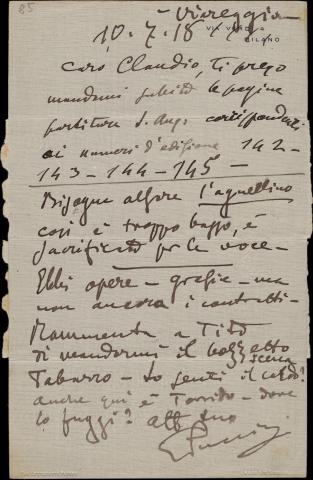 85
Viareggio
VIA VERDI, 4
MILANO
10. 7. 18
Caro Claudio, ti prego
mandami subito le pagine
partitura S. Ang. corrispondenti
ai numeri d'edizione 142 –
143 – 144 – 145 –
Bisogna alzare l'agnellino
così è troppo basso, è
sacrificato per la voce –
Ebbi opere – grazie – ma
non ancora i contratti –
Rammenta a Tito
di mandarmi il bozzetto
scena
Tabarro – Lo senti il caldo?
anche qui è Torrido – dove
lo fuggi? aff tuo
GPuccini